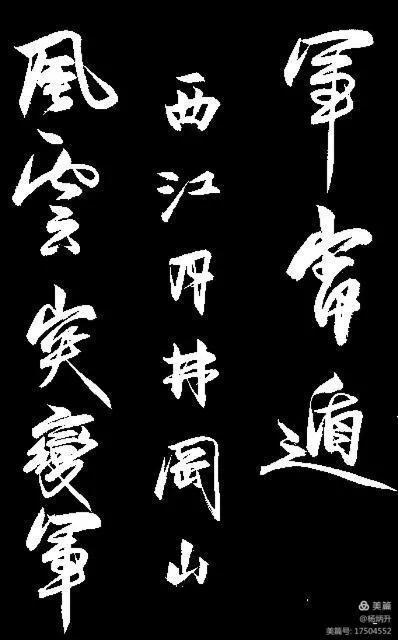 軍宵遁
西江月井岡山
風雲突變軍
美篇
@杨炳升
美篇号: 17504552